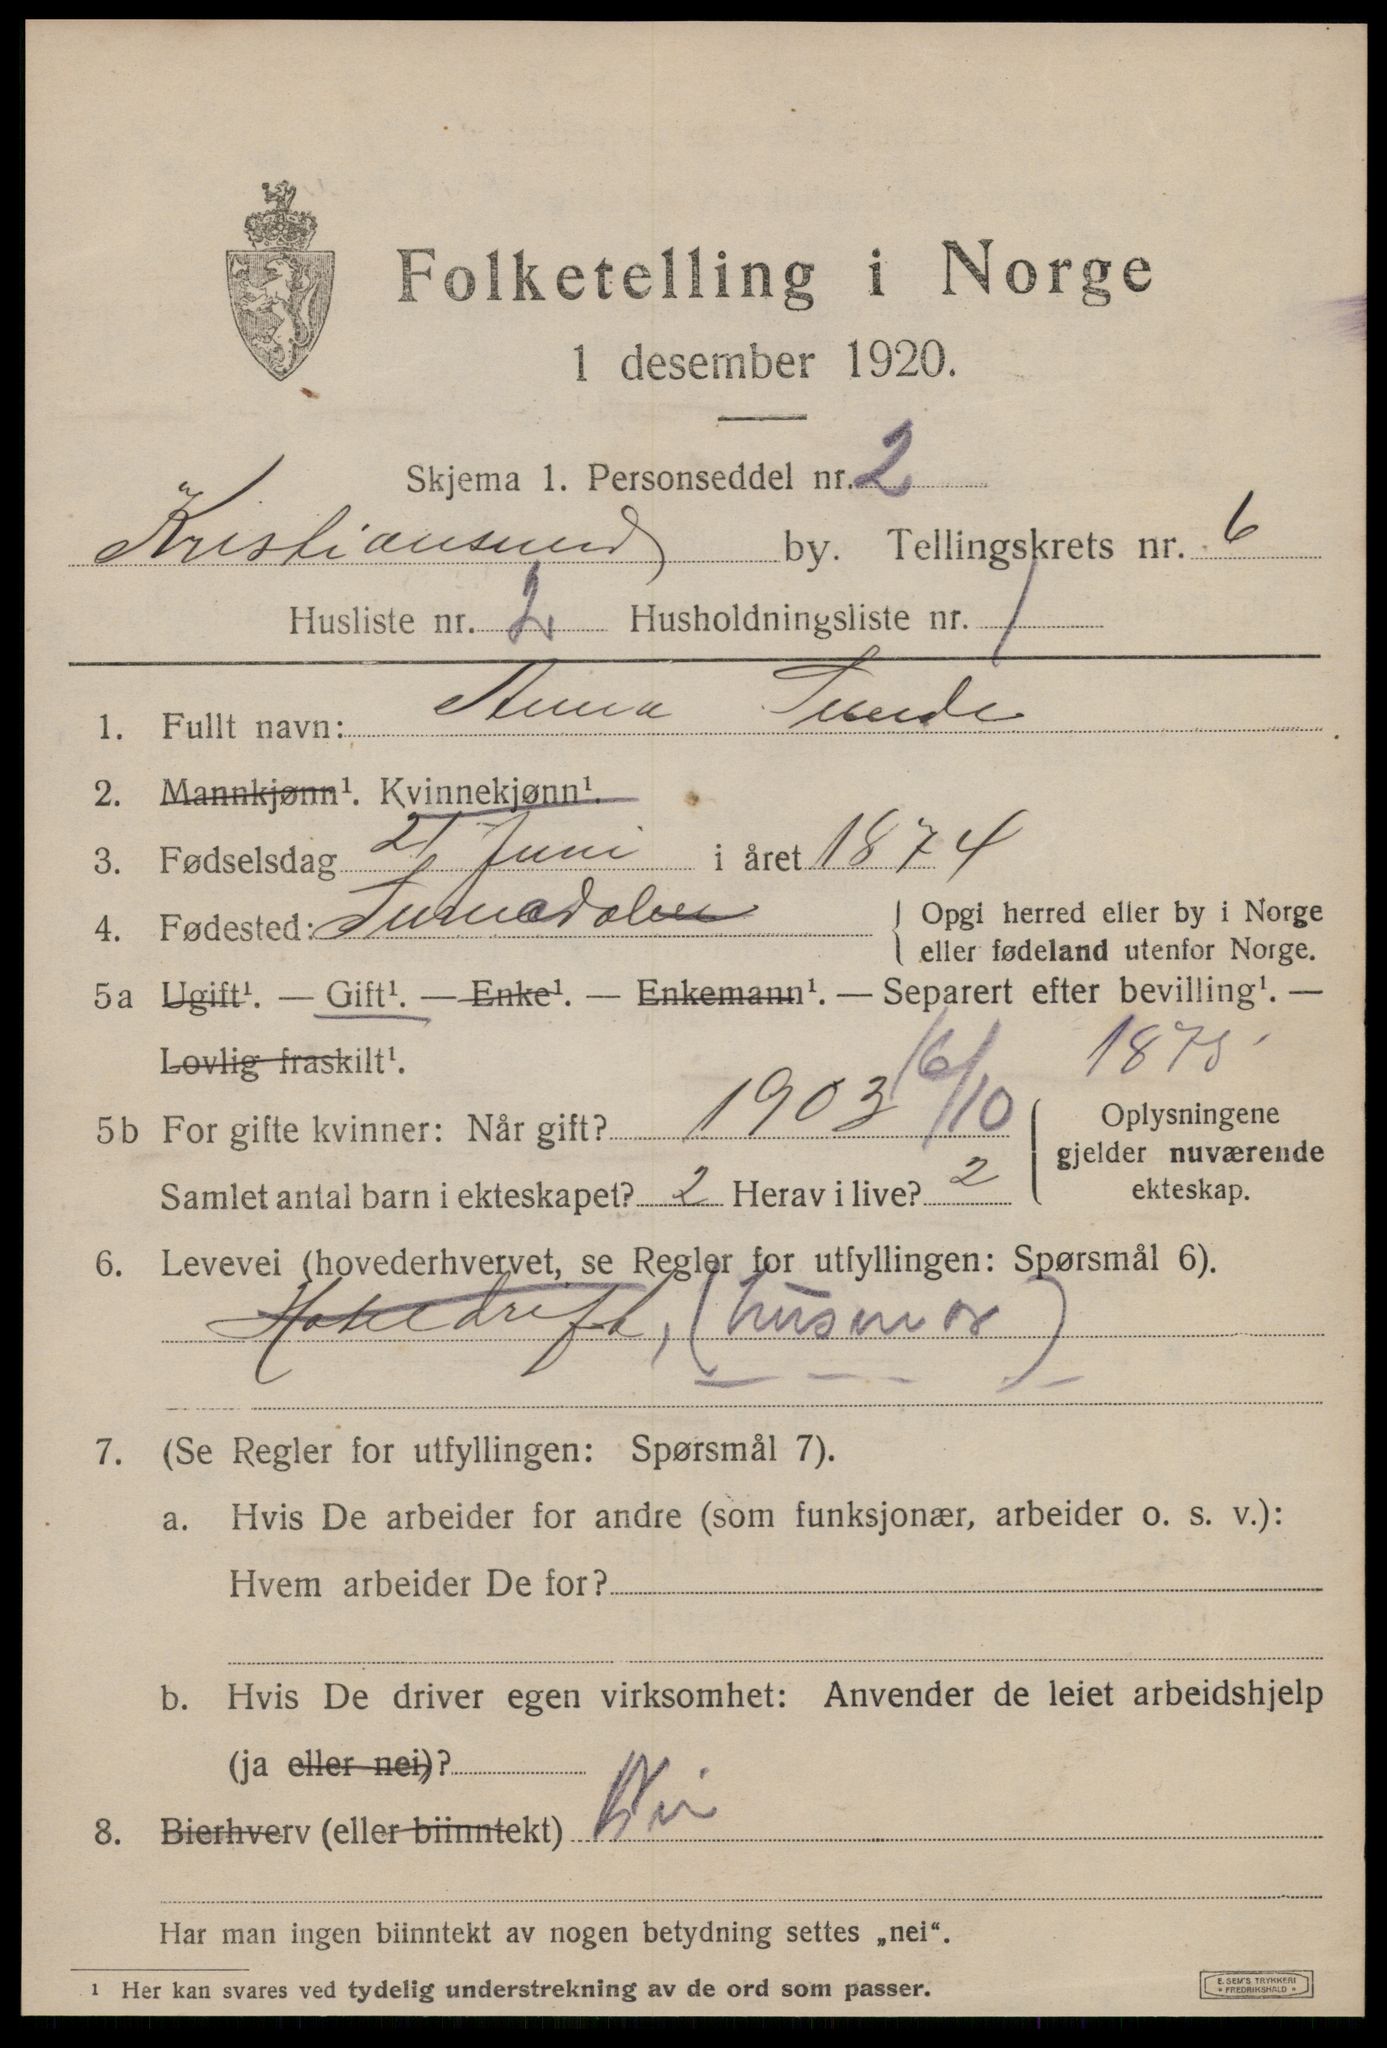 Folketelling i Norge
1 desember 1920.
Skjema 1. Personseddel nr. 2
Kristiansund by. Tellingskrets nr. 6
Husliste nr. 2 Husholdningsliste nr. 1
1. Fullt navn: Anna
2. Mannkjønn¹. Kvinnekjønn¹.
3. Fødselsdag 21 Juni i året 1874
4. Fødested: { Opgi herred eller by i Norge
eller fødeland utenfor Norge.
5a Ugift¹. — Gift¹. — Enke¹. — Enkemann¹. — Separert efter bevilling¹. —
Lovlig fraskilt¹. 1875
5b For gifte kvinner: Når gift? 1903 16/10 { Oplysningene
gjelder nuværende
Samlet antal barn i ekteskapet? 2 Herav i live? 2 ekteskap.
6. Levevei (hovederhvervet, se Regler for utfyllingen: Spørsmål 6).
Hoteldrift, (husmor)
7. (Se Regler for utfyllingen: Spørsmål 7).
a. Hvis De arbeider for andre (som funksjonær, arbeider o. s. v.):
Hvem arbeider De for?
b. Hvis De driver egen virksomhet: Anvender de leiet arbeidshjelp
(ja eller nei)?
8. Bierhverv (eller biinntekt) Nei
Har man ingen biinntekt av nogen betydning settes „nei“.
1 Her kan svares ved tydelig understrekning av de ord som passer.
E. SEM'S TRYKKERI
* FREDRIKSHALD *